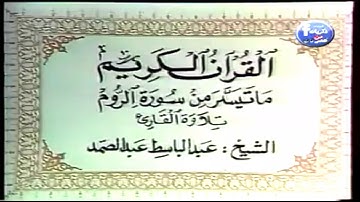 القرآن الكريم
ما تيسر من سورة الروم
تلاوة القارئ
الشيخ : عبد الباسط عبد الصمد